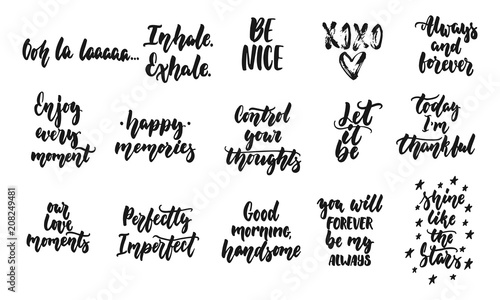 Ooh la laaaaa...
Inhale.
Exhale.
BE
NICE
XOXO
Always
and
forever
Enjoy
every
moment
·happy·
memories
Control
your
thoughts
Let
it
be
today
I'm
thankful
our
love
moments
Perfectly
Imperfect
Good
morning,
handsome
you will
FOREVER
be my
ALWAYS
shine
like
the
Stars
Adobe Stock | #208249481